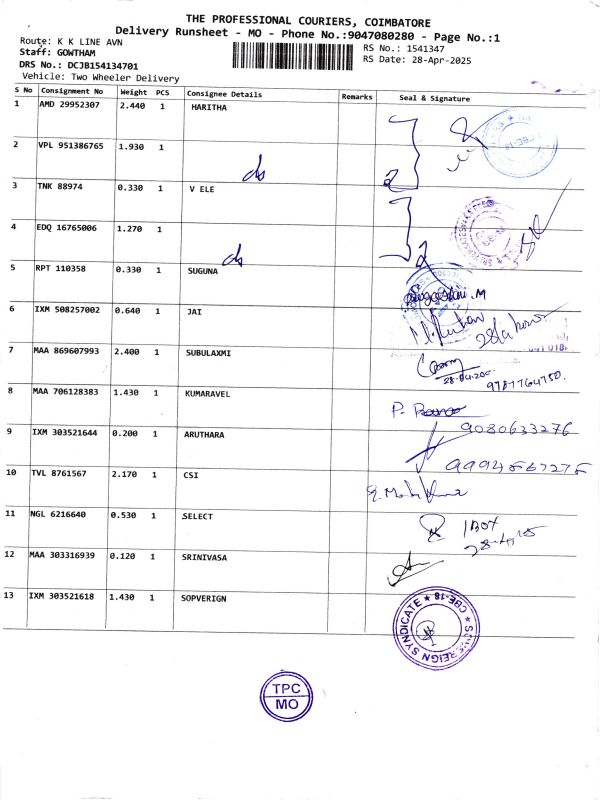 THE PROFESSIONAL COURIERS, COIMBATORE
Delivery Runsheet - MO - Phone No.:9047080280 - Page No.:1
Route: K K LINE AVN
RS No.: 1541347
Staff: GOWTHAM
RS Date: 28-Apr-2025
DRS No.: DCJB154134701
Vehicle: Two Wheeler Delivery
S No Consignment No Weight PCS Consignee Details Remarks Seal & Signature
1 AMD 29952307 2.440 1 HARITHA
CBE-18
2 VPL 951386765 1.930 1
3 TNK 88974 0.330 1 V ELE
4 EDQ 16765006 1.270 1
5 RPT 110358 0.330 1 SUGUNA
6 IXM 508257002 0.640 1 JAI
7 MAA 869607993 2.400 1 SUBULAXMI
9787764750
8 MAA 706128383 1.430 1 KUMARAVEL
9 IXM 303521644 0.200 1 ARUTHARA
9080633276
10 TVL 8761567 2.170 1 CSI
11 NGL 6216640 0.530 1 SELECT
1 Box
12 MAA 303316939 0.120 1 SRINIVASA
13 IXM 303521618 1.430 1 SOPVERIGN
SOVEREIGN SYNDICATE ★ CBE-18 ★
TPC
MO